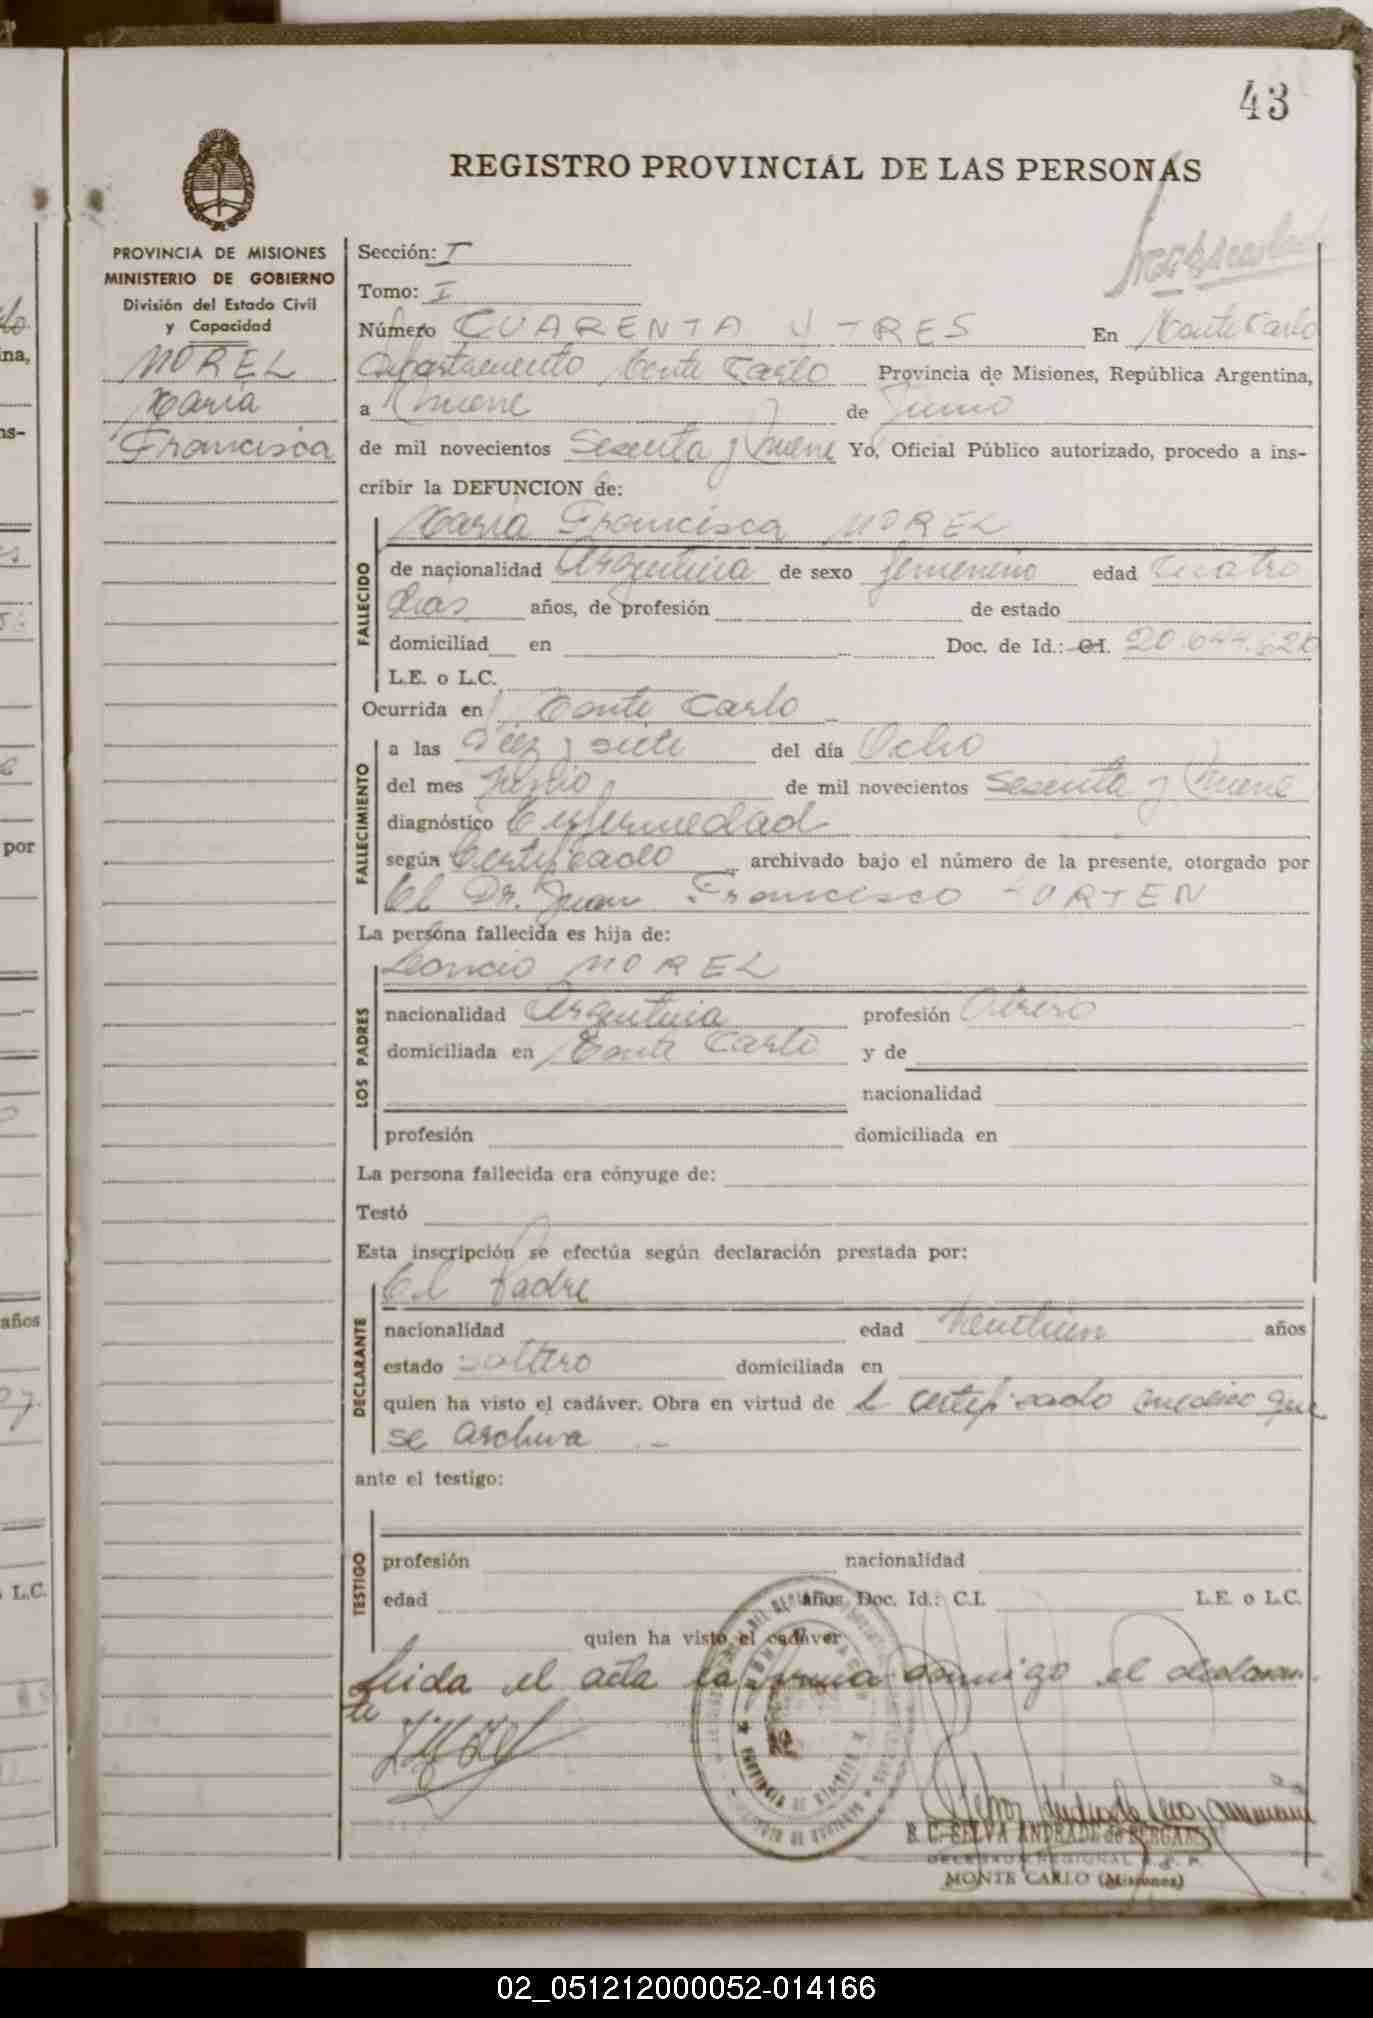 43
REGISTRO PROVINCIAL DE LAS PERSONAS
PROVINCIA DE MISIONES
MINISTERIO DE GOBIERNO
División del Estado Civil
y Capacidad
MOREL
Maria
Francisca
Sección: I
Tomo: I
Número CUARENTA Y TRES En Monte Carlo
departamento Monte Carlo Provincia de Misiones, República Argentina,
a Nueve de Junio
de mil novecientos Sesenta y Nueve Yo, Oficial Público autorizado, procedo a ins-
cribir la DEFUNCION de:
FALLECIDO
Maria Francisca MOREL
de nacionalidad Argentina de sexo femenino edad Cuatro
dias años, de profesión de estado
domiciliad en Doc. de Id.: C.I. 20.644.620
L.E. o L.C.
Ocurrida en Monte Carlo
FALLECIMIENTO
a las Diez y siete del día Ocho
del mes Junio de mil novecientos Sesenta y Nueve
diagnóstico Enfermedad
según Certificado archivado bajo el número de la presente, otorgado por
El Dr. Juan Francisco
La persona fallecida es hija de:
LOS PADRES
Leoncio MOREL
nacionalidad Argentina profesión Obrero
domiciliada en Monte Carlo y de
nacionalidad
profesión domiciliada en
La persona fallecida era cónyuge de:
Testó
Esta inscripción se efectúa según declaración prestada por:
DECLARANTE
El Padre
nacionalidad edad años
estado soltero domiciliada en
quien ha visto el cadáver. Obra en virtud de el certificado medico que
se archiva
ante el testigo:
TESTIGO
profesión nacionalidad
edad años Doc. Id.: C.I. L.E. o L.C.
quien ha visto el cadáver
Leida el acta la firma conmigo el declaran-
te
PROVINCIA DE MISIONES
B. C. SELVA ANDRADE de
DELEGADO REGIONAL R. P. P.
MONTE CARLO (Misiones)
por
años
L.C.
02_051212000052-014166